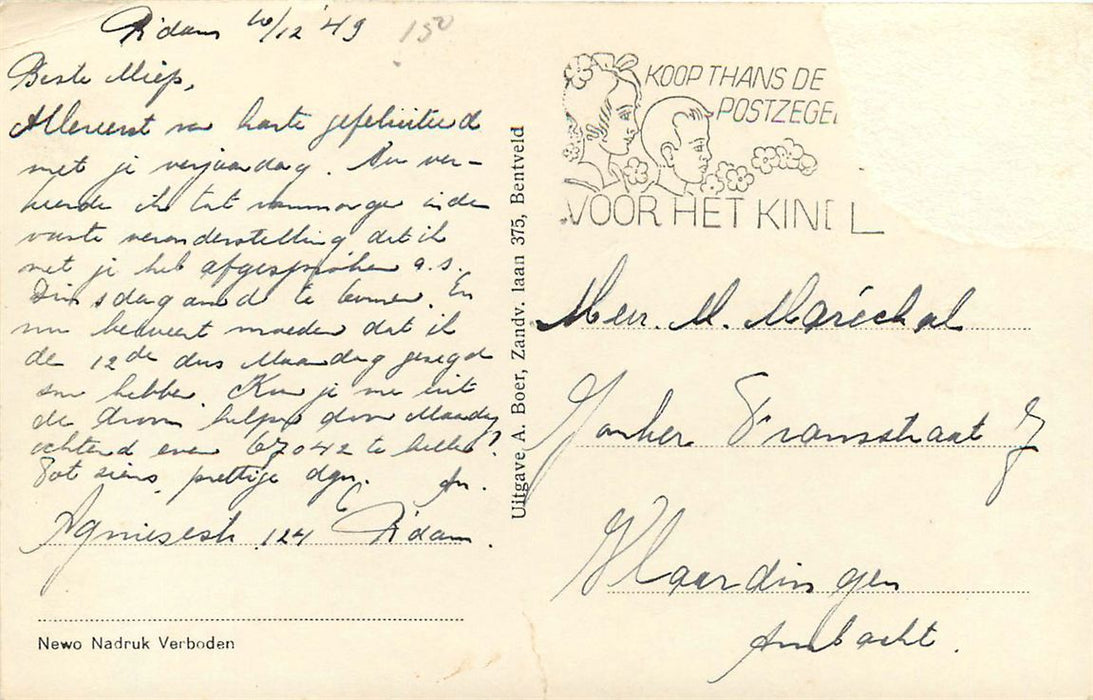 R'dam 10/12 '49
150
Beste Miep,
Allereerst van harte gefeliciteerd
met je verjaardag. Nu ver-
keerde ik tot vanmorgen in de
vaste veronderstelling dat ik
met je heb afgesproken a.s.
Dinsdagavond te komen. En
nu beweert moeder dat ik
de 12de dus Maandag gezegd
zou hebben. Kun je me uit
de droom helpen door Maandag
ochtend even 67042 te bellen?
Tot ziens, prettige dgn.
Agniesestr. 124 C R'dam.
Newo Nadruk Verboden
Uitgave A. Boer, Zandv. laan 375, Bentveld
KOOP THANS DE
POSTZEGE
VOOR HET KIND
Mej. M. Maréchal
Jonker Fransstraat 7
Vlaardingen
Ambacht.